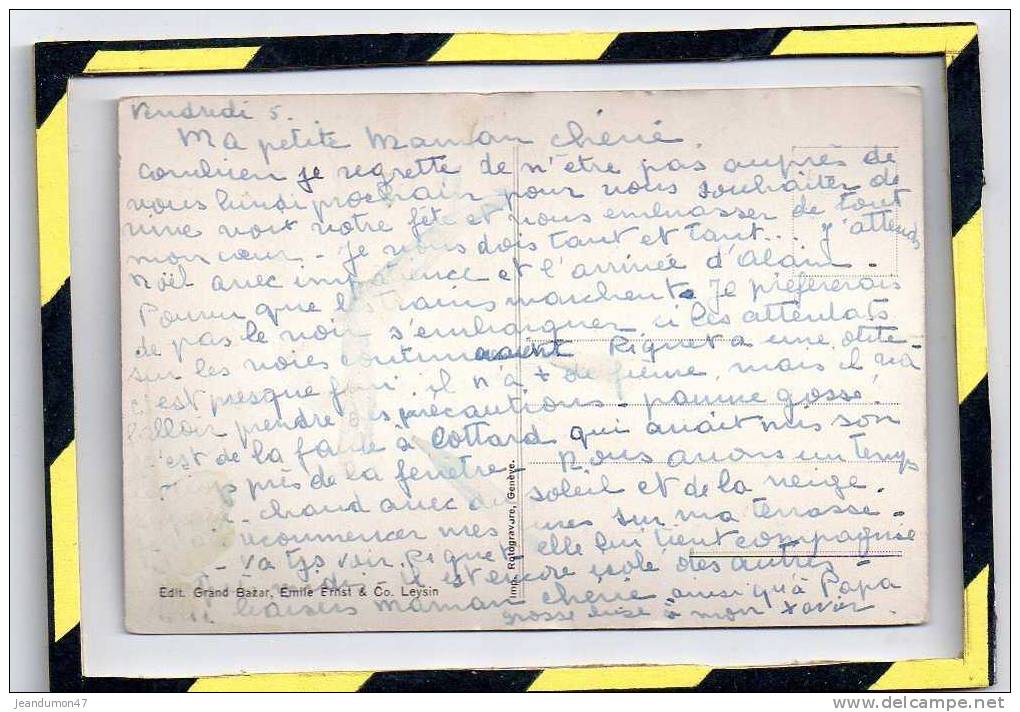 Vendredi 5.
Ma petite Maman chérie,
Combien je regrette de n'être pas auprès de
vous lundi prochain pour vous souhaiter de
vive voix votre fête et vous embrasser de tout
mon cœur. Je vous dois tant et tant... J'attends
Noël avec impatience et l'arrivée d'Alain.
Pourvu que les trains marchent. Je préfèrerais
de pas le voir s'embarquer si les attentats
sur les voies continuaient Riquet a une otite
c'est presque fini il n'a + de fièvre, mais il va
falloir prendre des précautions. pauvre gosse!
c'est de la faute à Cottard qui avait mis son
près de la fenêtre. Nous avons un temps
chaud avec du soleil et de la neige.
recommencer mes sur ma terrasse.
va tjs voir Riquet, elle lui tient compagnie
il est encore isolé des autres.
baisers maman chérie ainsi qu'à Papa
grosse bise à mon Xavier.
Edit. Grand Bazar, Emile Ernst & Co. Leysin
Imp. Rotogravure, Genève.
jeandumon47
www.delcampe.net